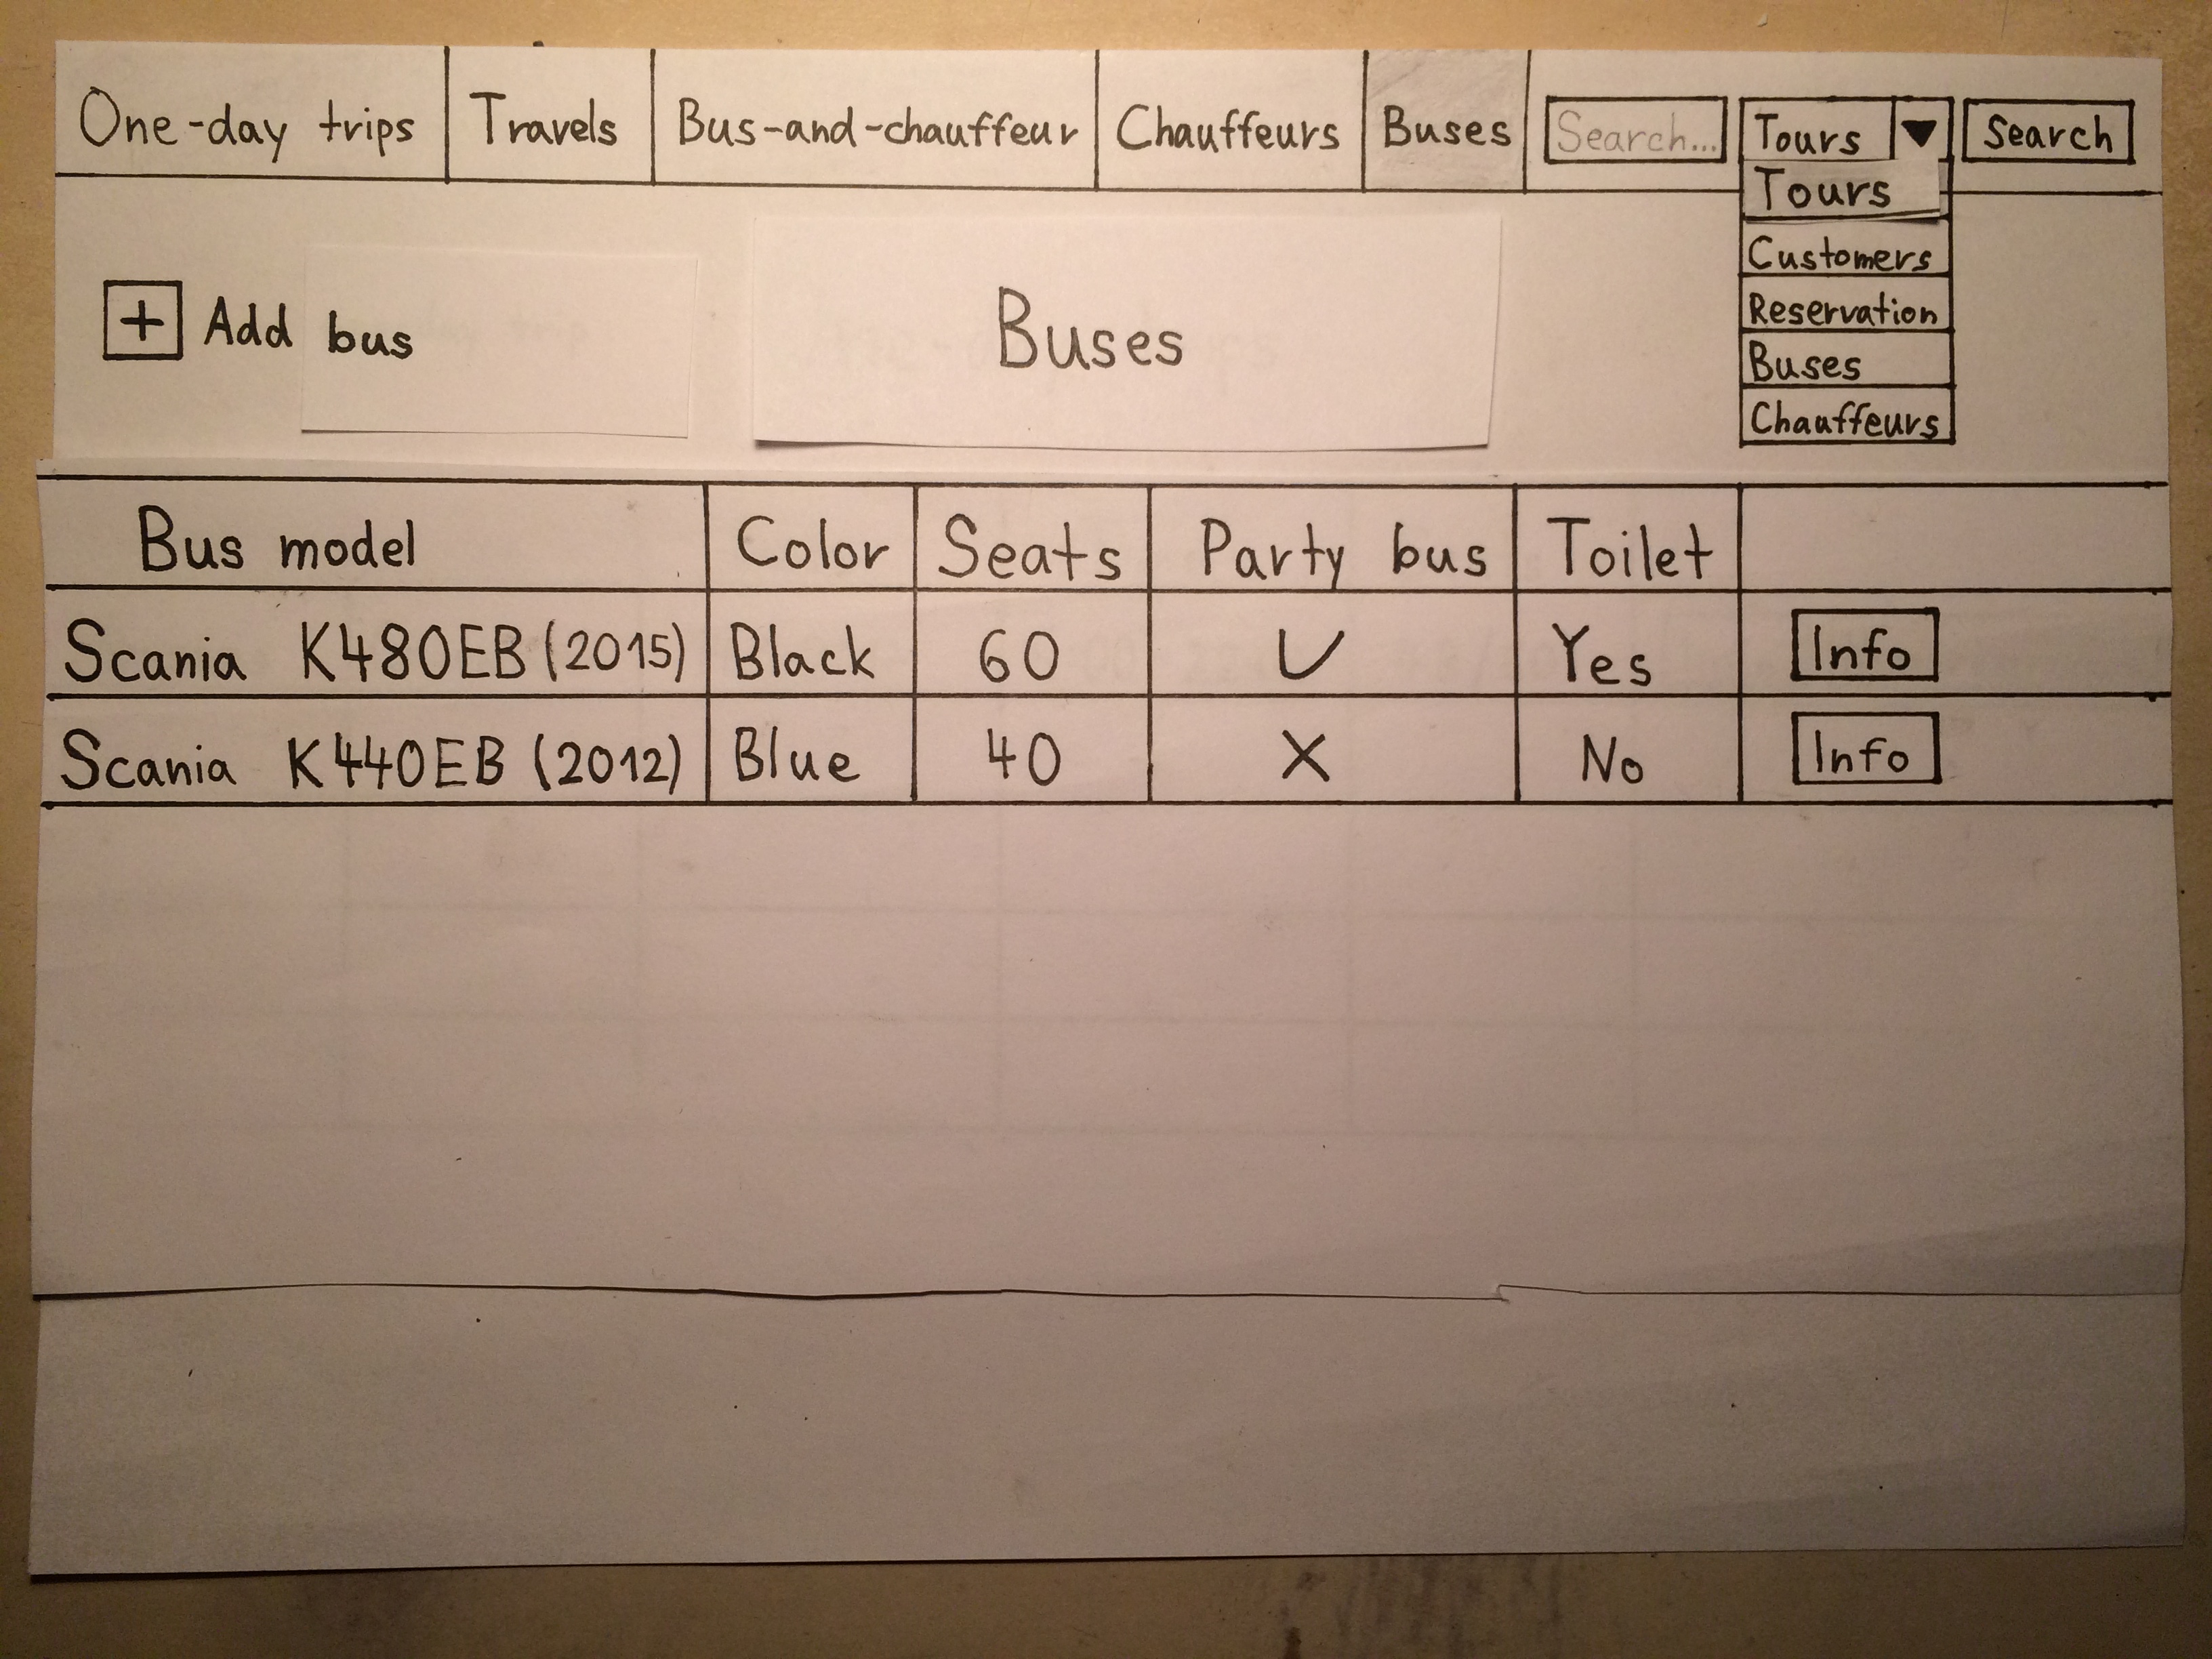 One-day trips Travels Bus-and-chauffeur Chauffeurs Buses Search... Tours ▼ Search
Tours
Customers
Reservation
Buses
Chauffeurs
+ Add bus
Buses
Bus model Color Seats Party bus Toilet
Scania K480EB (2015) Black 60 ✓ Yes Info
Scania K440EB (2012) Blue 40 X No Info